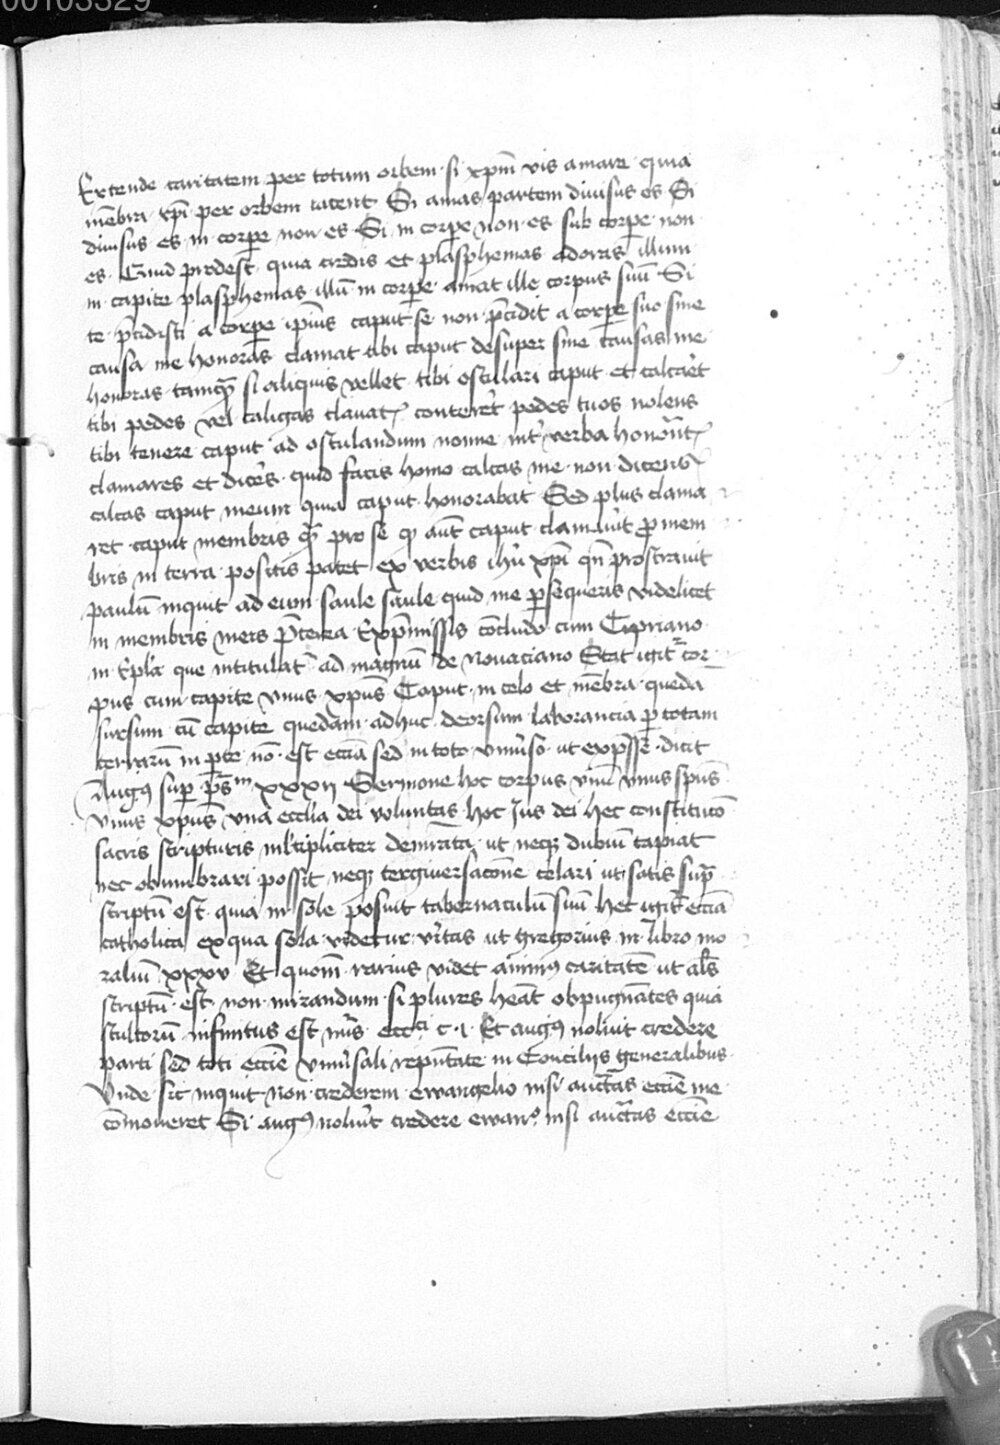 00103329
Extende caritatem per totum orbem si xpm̄ vis amare quia
mēbra xpī per orbem iacent Si amas partem diuisus es Si
diuisus es in corꝑe non es Si in corꝑe non es sub corꝑe non
es Quid prodest quia credis et plasphemas adoras illum
in capite plasphemas illū in corꝑe amat ille corpus suū Si
te p̄cidisti a corꝑe ipīus caput se non p̄cidit a corꝑe suo sine
causa me honoras clamat tibi caput desuper sine causas me
honoras tamqͣ si aliquis vellet tibi osculari caput et calcar̄et
tibi pedes vel caligas clauatꝭ conteret pedes tuos nolens
tibi tenere caput ad osculandum nonne int̄ verba honorāntꝭ
clamares et dices quid facis homo calcas me non dicens
calcas caput meum quia caput honorabat Sed plus clama
ret caput membris qͣ pro se qꝫ aūt caput clamauit ꝓ mem
bris in terra positis patet ex verbis ihū xpī qn̄ prostrauit
paulū inquit ad eum saule saule quid me ꝑsequeris videlicet
in membris meis p̄terea Ex p̄missis cōcludo cum Cipriano
in Ep̄la que intitulat̄ ad magnū de Nouaciano Stat igit̄ cor
pus cum capite vnus xpus Caput in celo et mēbra queda
sursum cū capite quedam adhuc deorsum laborancia ꝑ totam
terrarū in ꝑte nō est ecc̄ia sed in toto vniu̓so ut exp̄sse dicit
Augꝰ suꝑ ps̄ᵐ xxxij Sermone hoc corpus vnū vnus spūs
vnus xpūs vna eccl̄ia dei voluntas hoc Jus dei hec constitucō
sacris scripturis ml̄tipliciter demrata ut neqꝫ dubiū capiat
nec obumbrari possit neqꝫ tergiuersacōne celari ut satis supͣ
scriptū est quia in sole posuit tabernaculū suū hec igit̄ ecc̄ia
catholica ex qua sola videtur v̄itas ut Gregorius in libro mo
raliū xxxv Et quom̄ rarius videt animꝰ caritatē ut al̄s
scriptū est non mirandum si plures heāt obpugnātes quia
stultorū infinitus est nūs ecc̄ᶜⁱ c 1 Et augꝰ noluit credere
parti sed toti ecc̄ie vniu̓sali repn̄tate in Concilijs generalibus
Vnde sic inquit Non crederem ewangelio nisi auct̄as ecc̄ie me
cōmoueret Si augꝰ noluit credere ewanᵒ nisi auct̄as ecc̄ie